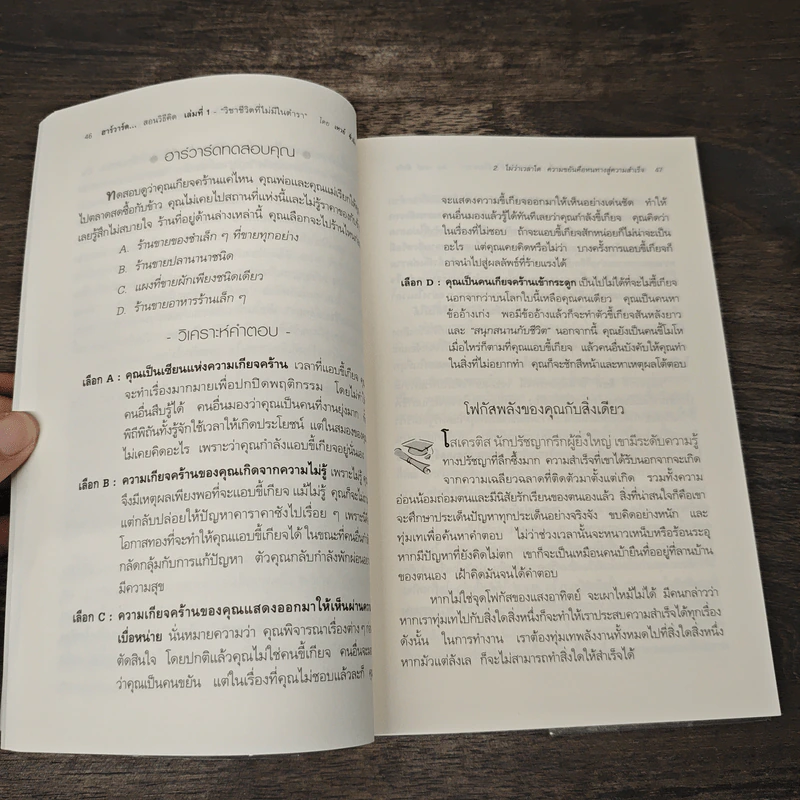 46 ฮาร์วาร์ด... สอนวิธีคิด เล่มที่ 1 - "วิชาชีวิตที่ไม่มีในตำรา" โดย
ฮาร์วาร์ดทดสอบคุณ
ทดสอบดูว่าคุณเกียจคร้านแค่ไหน คุณพ่อและคุณแม่เรียกให้
ไปตลาดสดซื้อกับข้าว คุณไม่เคยไปสถานที่แห่งนี้และไม่รู้ราคาของ
เลยรู้สึกไม่สบายใจ ร้านที่อยู่ด้านล่างเหล่านี้ คุณเลือกจะไปร้านไหน
A. ร้านขายของชำเล็ก ๆ ที่ขายทุกอย่าง
B. ร้านขายปลานานาชนิด
C. แผงที่ขายผักเพียงชนิดเดียว
D. ร้านขายอาหารร้านเล็ก ๆ
- วิเคราะห์คำตอบ -
เลือก A : คุณเป็นเซียนแห่งความเกียจคร้าน เวลาที่แอบขี้เกียจ
จะทำเรื่องมากมายเพื่อปกปิดพฤติกรรม โดยไม่
คนอื่นสืบรู้ได้ คนอื่นมองว่าคุณเป็นคนที่งานยุ่งมาก
พิถีพิถันทั้งรู้จักใช้เวลาให้เกิดประโยชน์ แต่ในสมองของคุณ
ไม่เคยคิดอะไร เพราะว่าคุณกำลังแอบขี้เกียจอยู่นั่นเอง
เลือก B : ความเกียจคร้านของคุณเกิดจากความไม่รู้ เพราะไม่รู้
จึงมีเหตุผลเพียงพอที่จะแอบขี้เกียจ แม้ไม่รู้ คุณก็จะไม่
แต่กลับปล่อยให้ปัญหาคาราคาซังไปเรื่อย ๆ เพราะนี่
โอกาสทองที่จะทำให้คุณแอบขี้เกียจได้ ในขณะที่คนอื่น
กลัดกลุ้มกับการแก้ปัญหา ตัวคุณกลับกำลังพักผ่อน
มีความสุข
เลือก C : ความเกียจคร้านของคุณแสดงออกมาให้เห็นผ่าน
เบื่อหน่าย นั่นหมายความว่า คุณพิจารณาเรื่องต่าง ๆ
ตัดสินใจ โดยปกติแล้วคุณไม่ใช่คนขี้เกียจ คนอื่น
ว่าคุณเป็นคนขยัน แต่ในเรื่องที่คุณไม่ชอบแล้วละก็
2 ไม่ว่าเวลาใด ความขยันคือหนทางสู่ความสำเร็จ 47
จะแสดงความขี้เกียจออกมาให้เห็นอย่างเด่นชัด ทำให้
คนอื่นมองแล้วรู้ได้ทันทีเลยว่าคุณกำลังขี้เกียจ คุณคิดว่า
ในเรื่องที่ไม่ชอบ ถ้าจะแอบขี้เกียจสักหน่อยก็ไม่น่าจะเป็น
อะไร แต่คุณเคยคิดหรือไม่ว่า บางครั้งการแอบขี้เกียจก็
อาจนำไปสู่ผลลัพธ์ที่ร้ายแรงได้
เลือก D : คุณเป็นคนเกียจคร้านเข้ากระดูก เป็นไปไม่ได้ที่จะไม่ขี้เกียจ
นอกจากว่าบนโลกใบนี้เหลือคุณคนเดียว คุณเป็นคนหา
ข้ออ้างเก่ง พอมีข้ออ้างแล้วก็จะทำตัวขี้เกียจสันหลังยาว
และ "สนุกสนานกับชีวิต" นอกจากนี้ คุณยังเป็นคนขี้โมโห
เมื่อไหร่ก็ตามที่คุณแอบขี้เกียจ แล้วคนอื่นบังคับให้คุณทำ
ในสิ่งที่ไม่อยากทำ คุณก็จะชักสีหน้าและหาเหตุผลโต้ตอบ
โฟกัสพลังของคุณกับสิ่งเดียว
โสเครติส นักปรัชญากรีกผู้ยิ่งใหญ่ เขามีระดับความรู้
ทางปรัชญาที่ลึกซึ้งมาก ความสำเร็จที่เขาได้รับนอกจากจะเกิด
จากความเฉลียวฉลาดที่ติดตัวมาตั้งแต่เกิด รวมทั้งความ
อ่อนน้อมถ่อมตนและมีนิสัยรักเรียนของตนเองแล้ว สิ่งที่น่าสนใจก็คือเขา
จะศึกษาประเด็นปัญหาทุกประเด็นอย่างจริงจัง ขบคิดอย่างหนัก และ
ทุ่มเทเพื่อค้นหาคำตอบ ไม่ว่าช่วงเวลานั้นจะหนาวเหน็บหรือร้อนระอุ
หากมีปัญหาที่ยังคิดไม่ตก เขาก็จะเป็นเหมือนคนบ้ายืนที่ออยู่ที่ลานบ้าน
ของตนเอง เฝ้าคิดมันจนได้คำตอบ
หากไม่ใช่จุดโฟกัสของแสงอาทิตย์ จะเผาไหม้ไม่ได้ มีคนกล่าวว่า
หากเราทุ่มเทไปกับสิ่งใดสิ่งหนึ่งก็จะทำให้เราประสบความสำเร็จได้ทุกเรื่อง
ดังนั้น ในการทำงาน เราต้องทุ่มเทพลังงานทั้งหมดไปที่สิ่งใดสิ่งหนึ่ง
หากมัวแต่ลังเล ก็จะไม่สามารถทำสิ่งใดให้สำเร็จได้